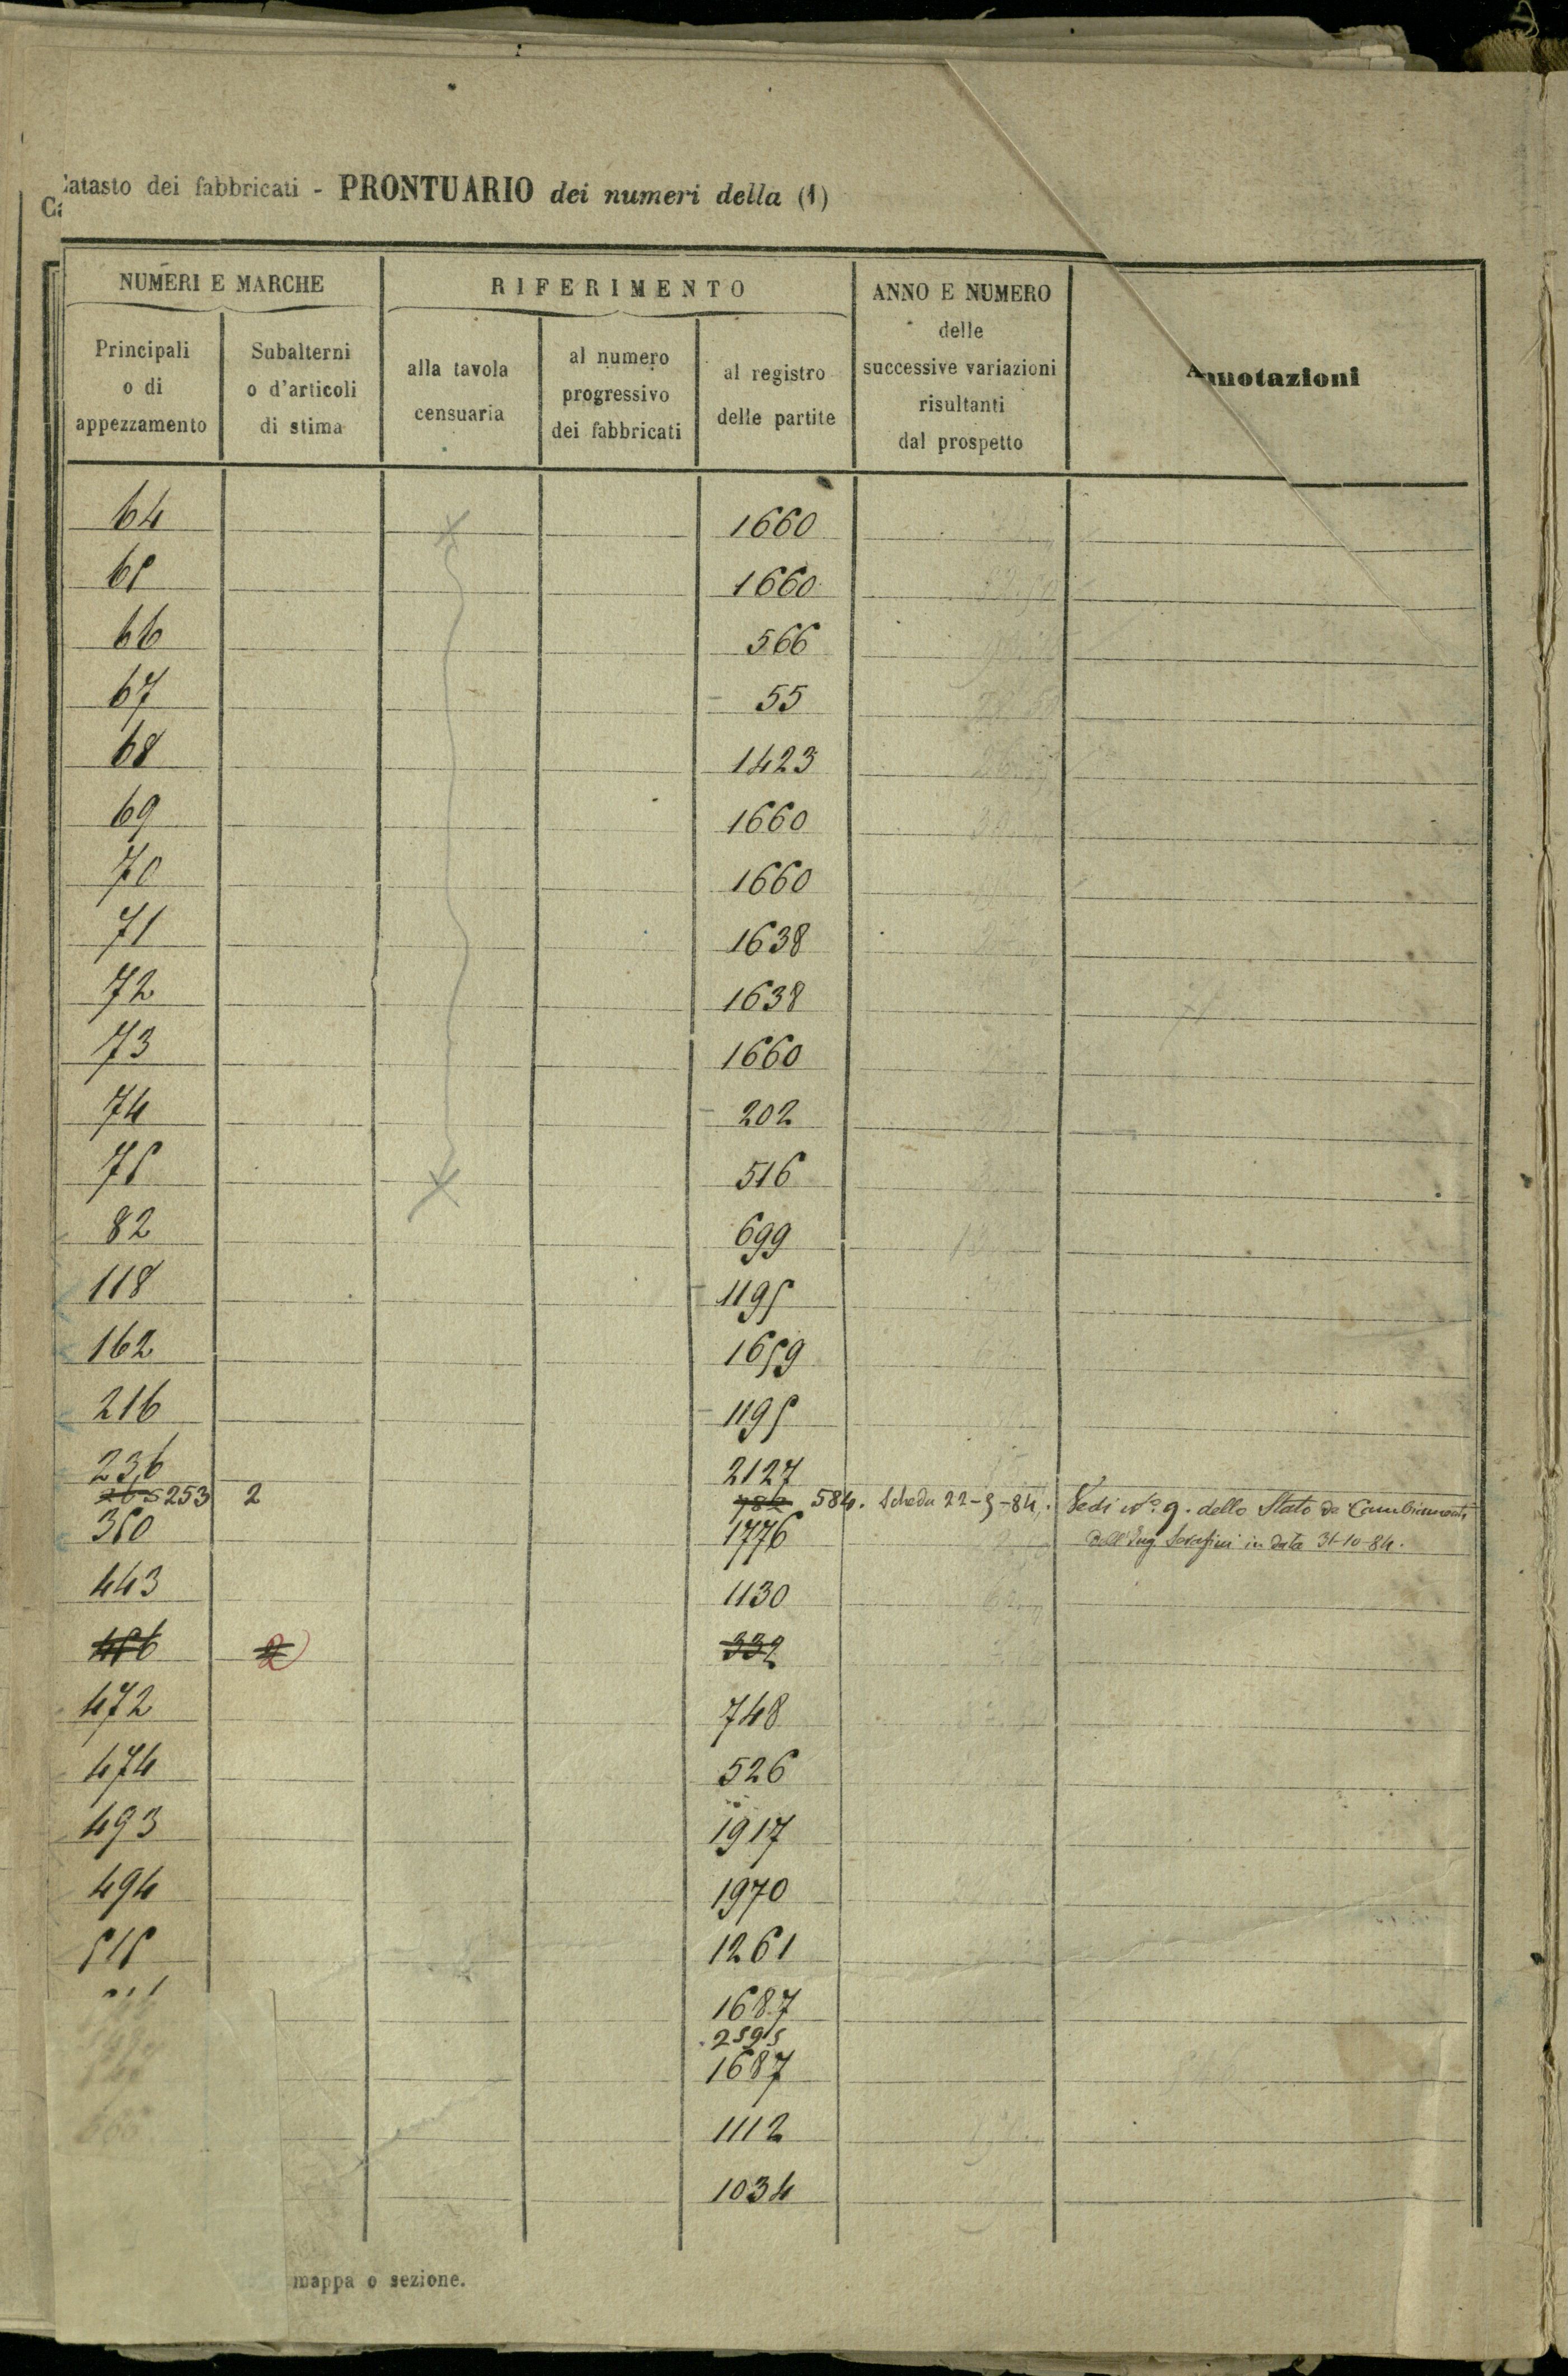 Catasto dei fabbricati - PRONTUARIO dei numeri della (1)
NUMERI E MARCHE
RIFERIMENTO
ANNO E NUMERO
delle
successive variazioni
risultanti
dal prospetto
Annotazioni
Principali
o di
appezzamento
Subalterni
o d'articoli
di stima
alla tavola
censuaria
al numero
progressivo
dei fabbricati
al registro
delle partite
64 1660
65 1660
66 566
67 55
68 1423
69 1660
70 1660
71 1638
72 1638
73 1660
74 202
75 516
82 699
118 1195
162 1659
216 1195
236 2127
253 2 584. Scheda 22-5-84. Vedi N.o 9. dello Stato de Cambiamenti
350 1776 dell'Ing Serafini in data 31-10-84.
443 1130
456 2 332
472 748
474 526
493 1917
494 1970
515 1261
1687
2595
1687
1112
1034
mappa o sezione.